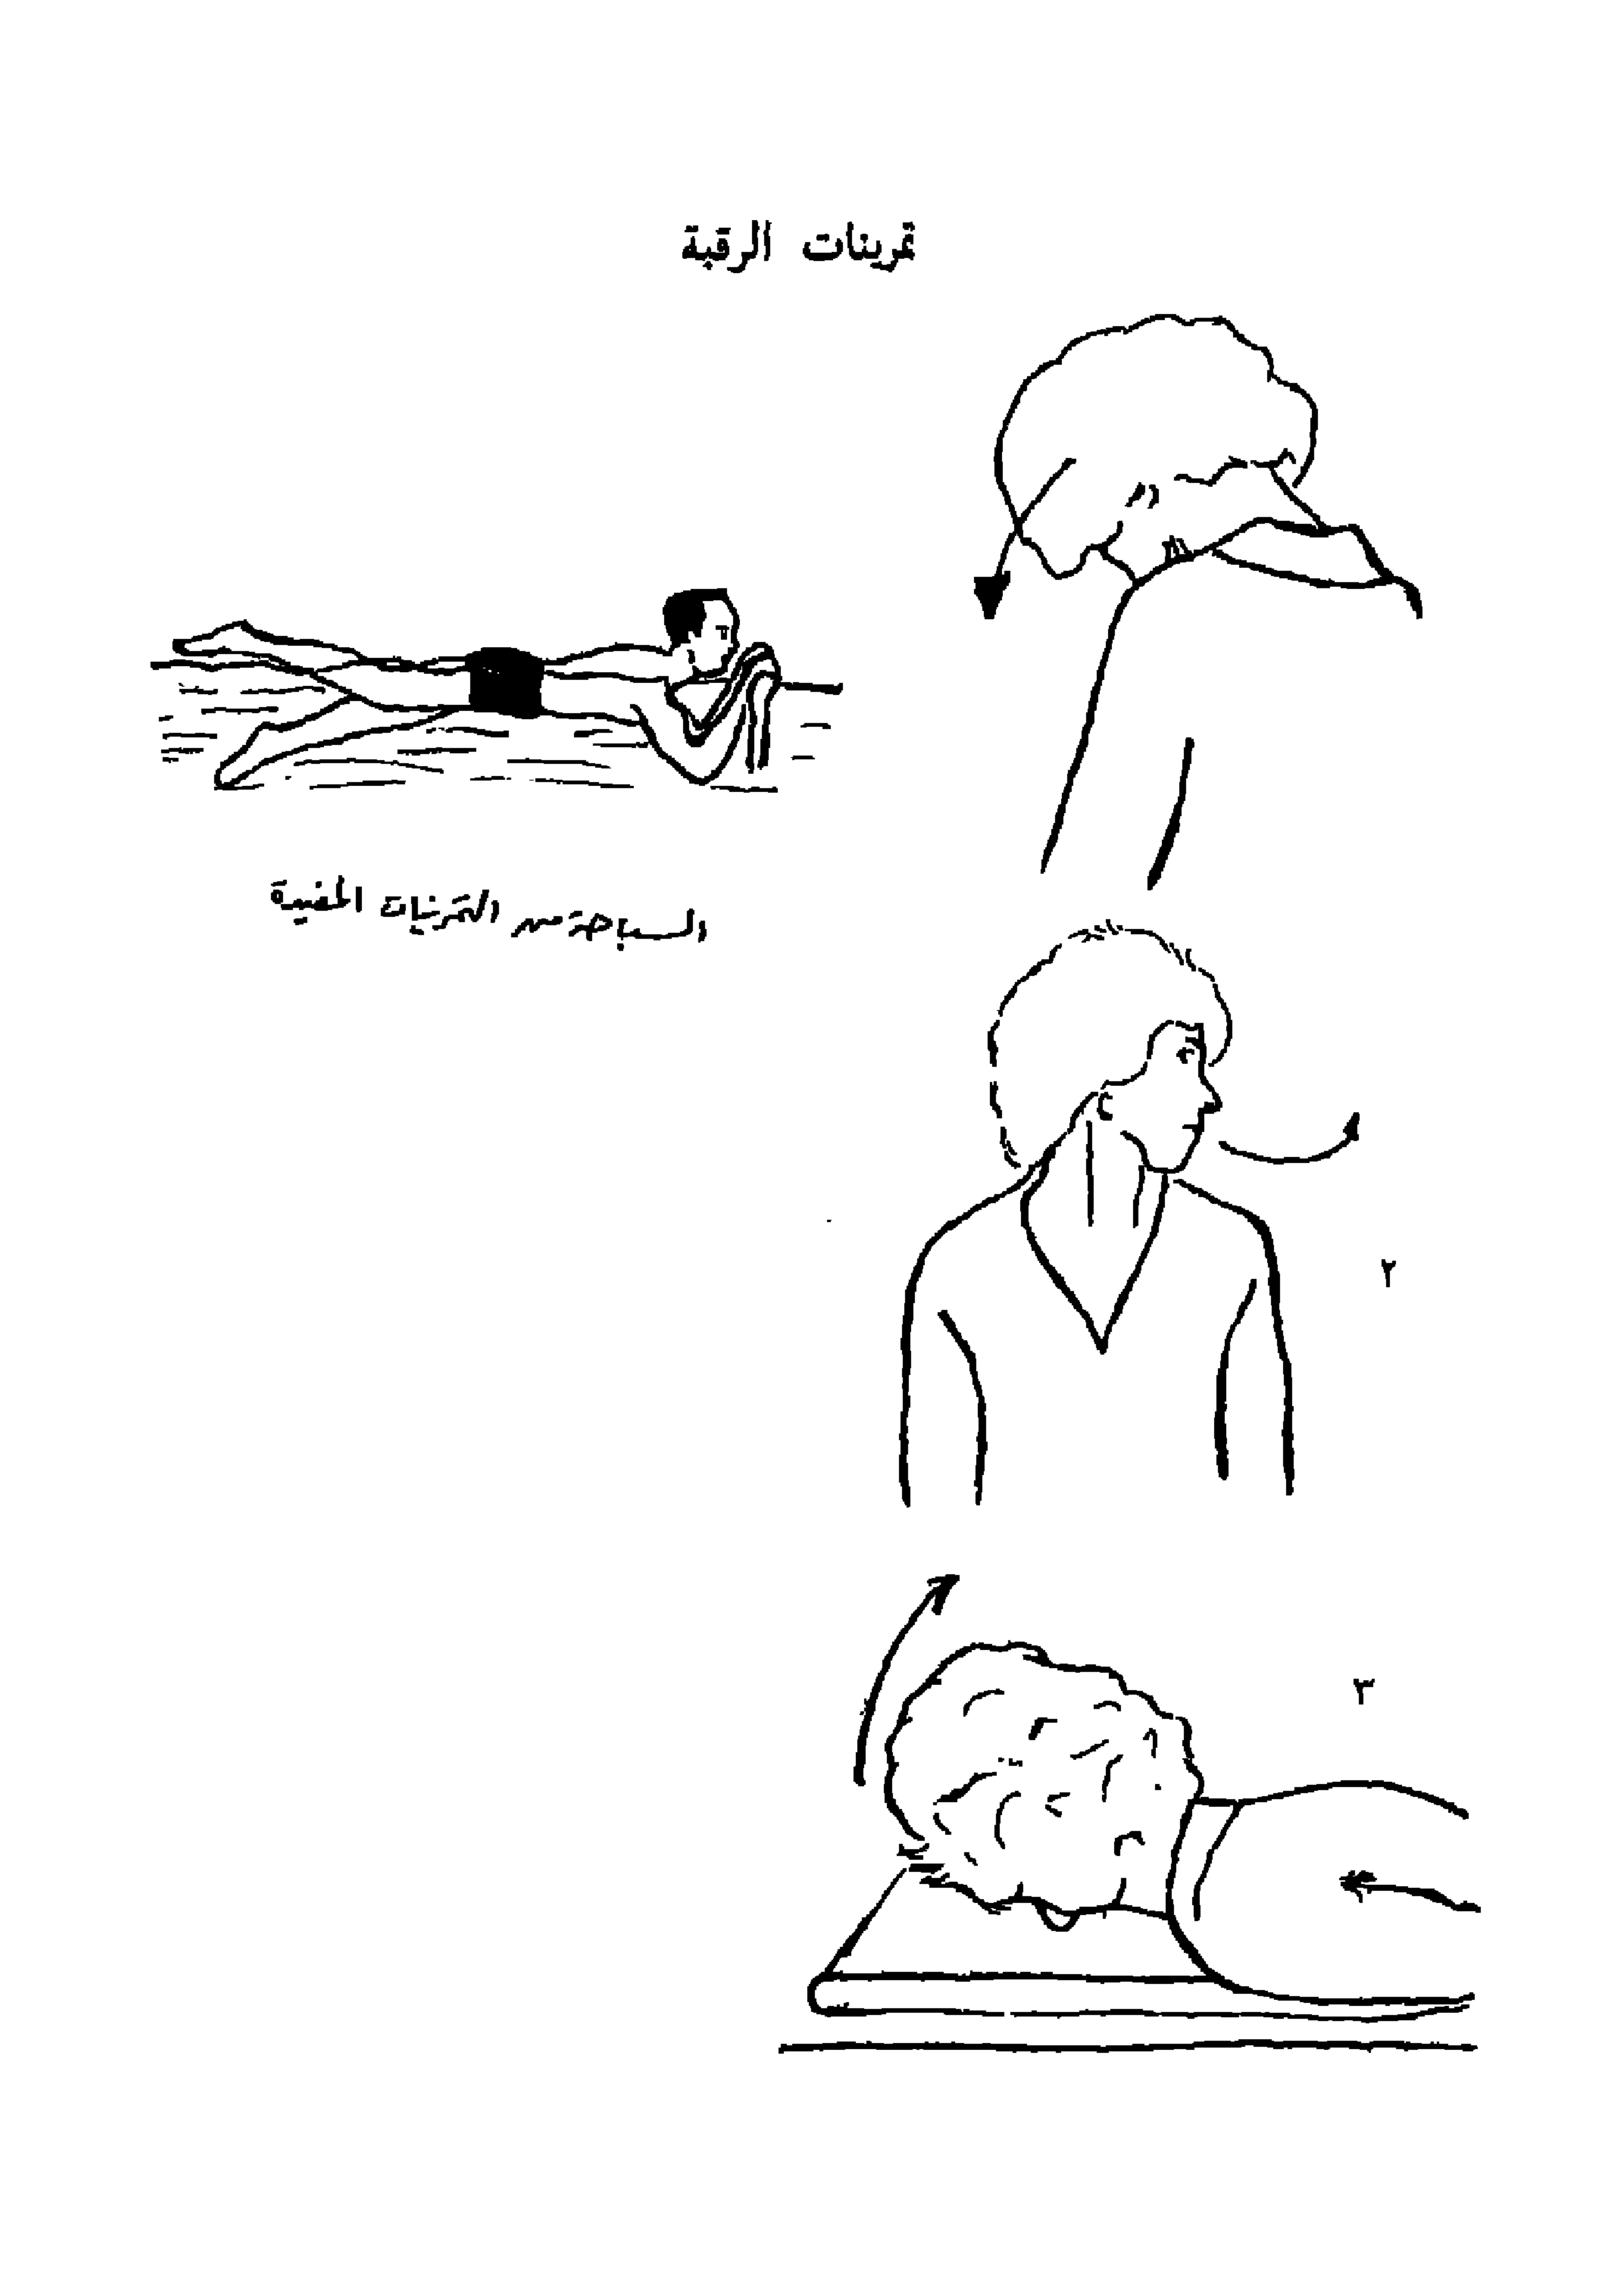 تمرينات الرقبة
السباحة من التمرينات المفيدة
٢
٣